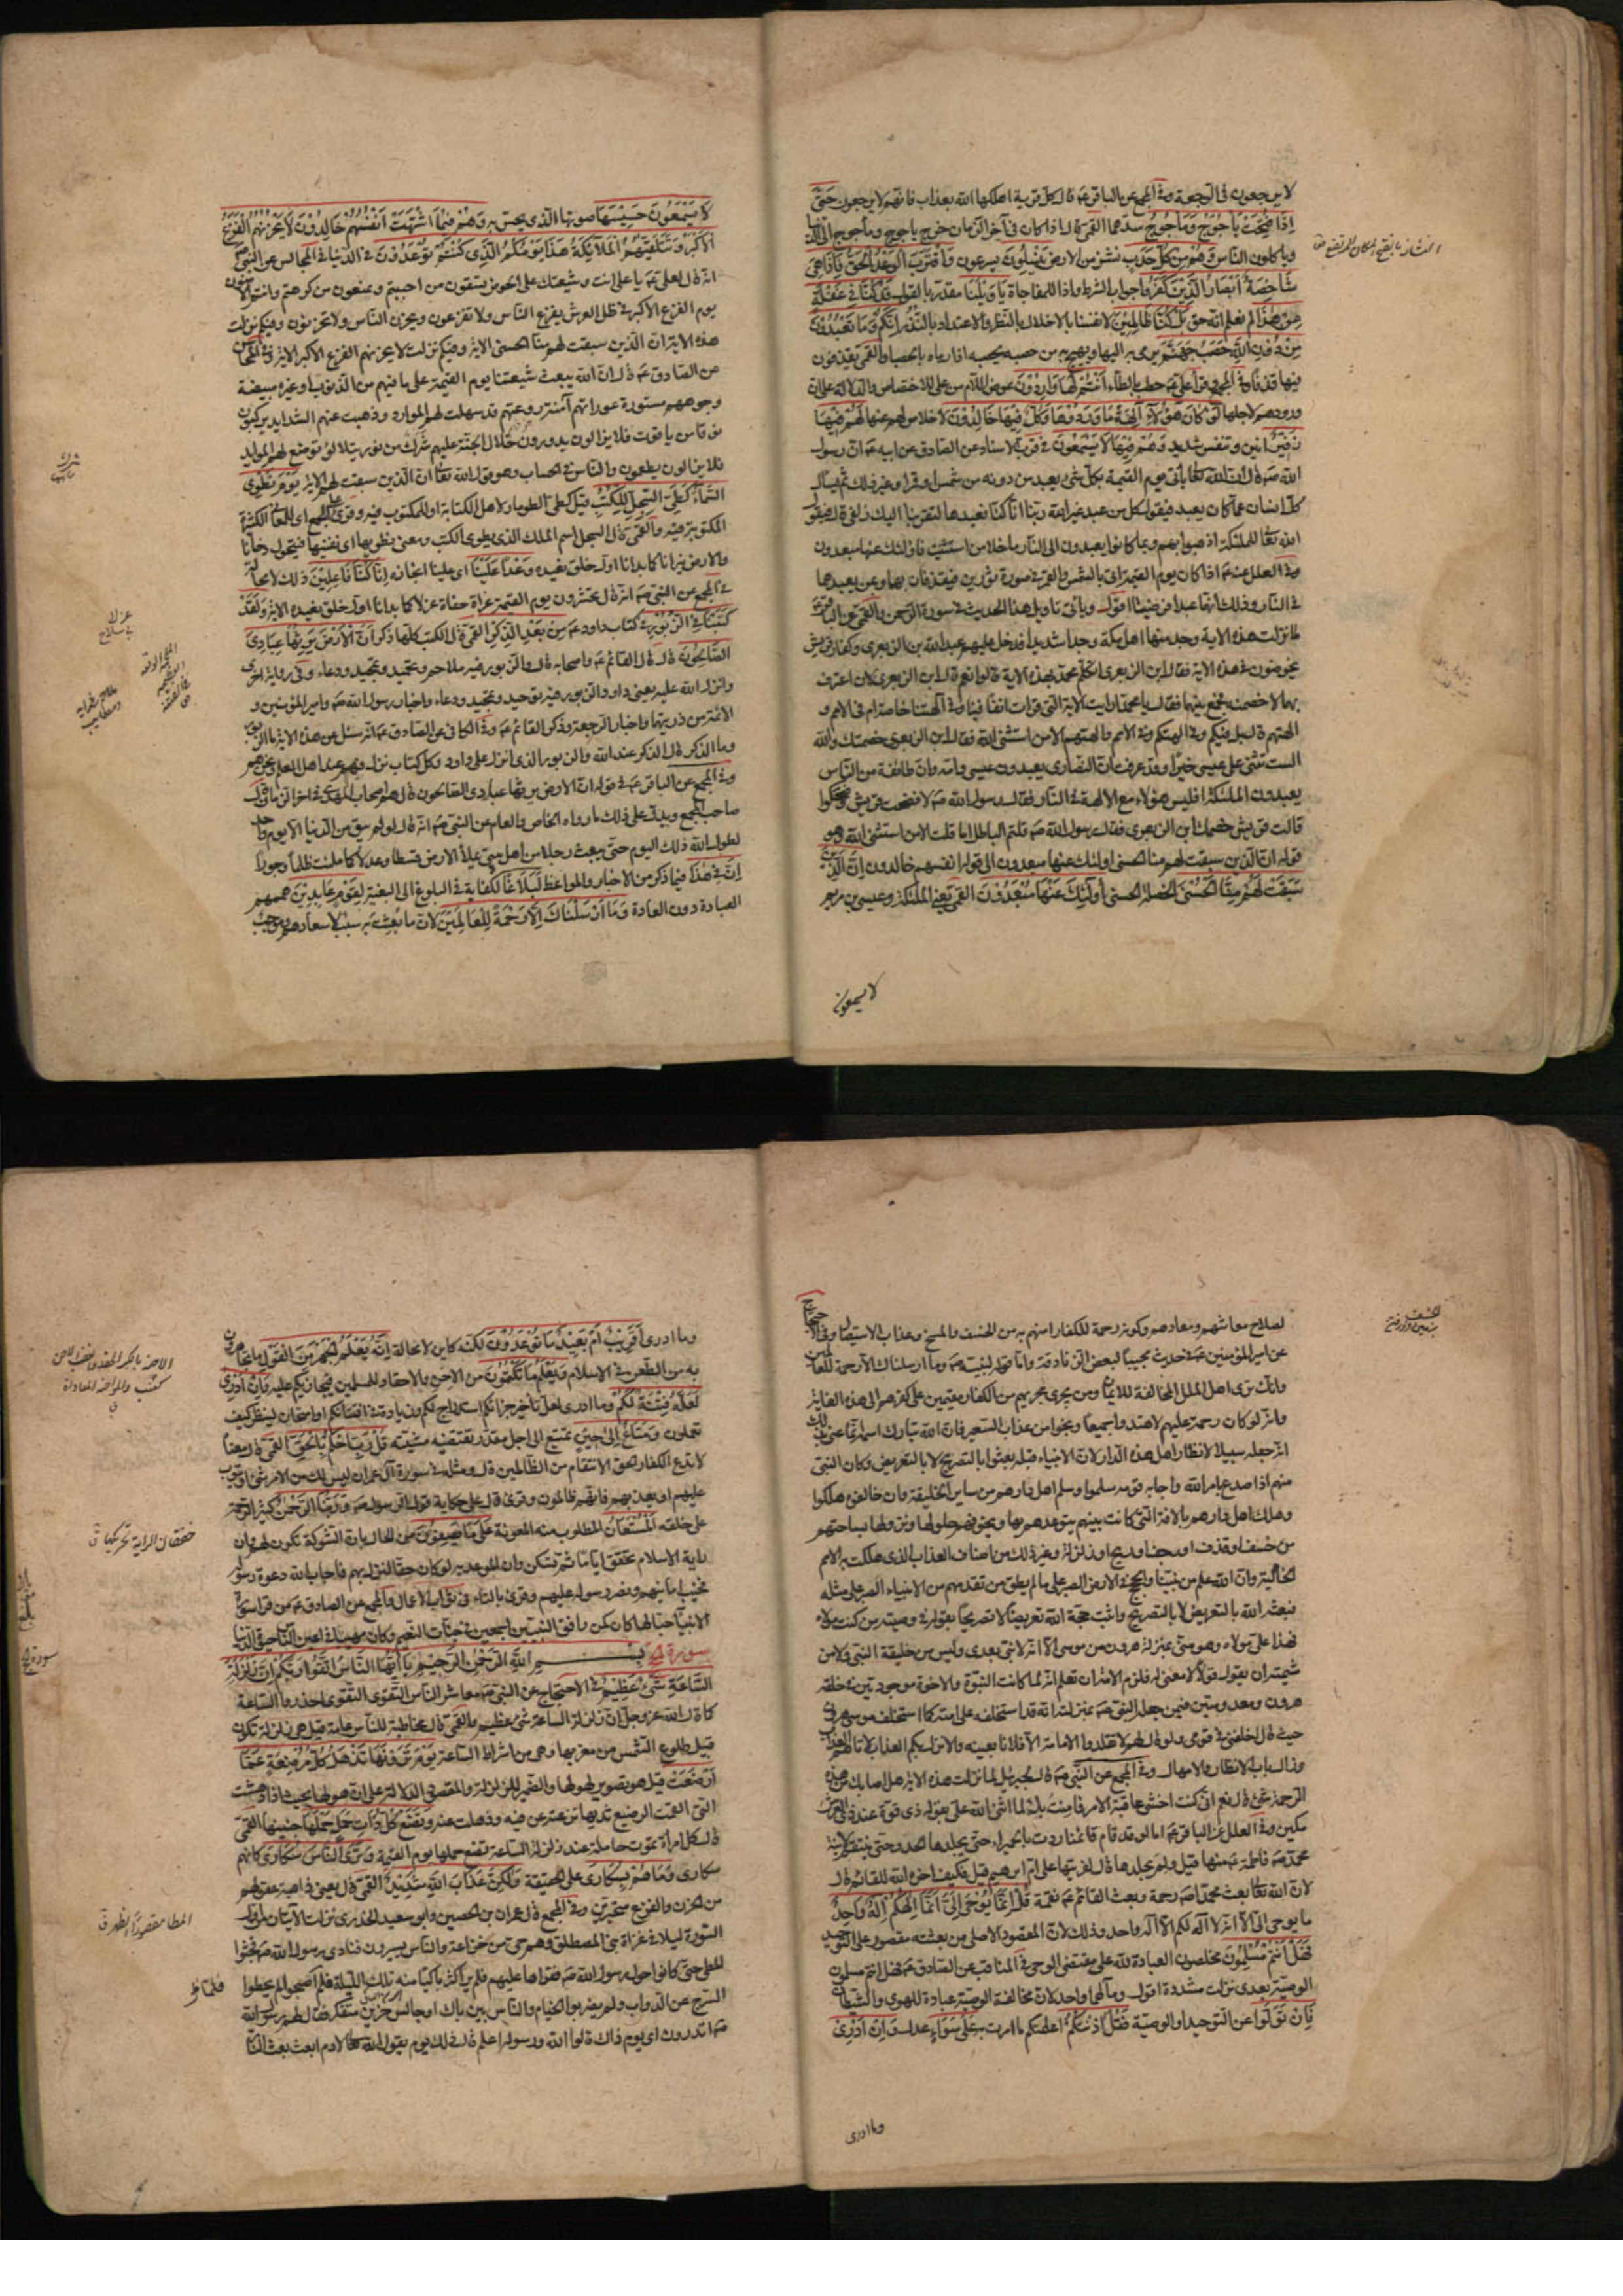 لا يرجعون في الرجعة وفي المجمع عن الباقر عم قال كل قرية اهلكها الله بعذاب فانهم لا يرجعون حَتّى
اِذا فُتِحَتْ يَأجُوجُ وَمَأجُوجُ سدهما القمي قال اذا كان في آخر الزمان خرج ياجوج وماجوج الى الدنيا
وياكلون الناس وَهُمْ مِنْ كُلِّ حَدَبٍ نشز من الارض يَنْسِلُونَ يسرعون وَاقْتَرَبَ الْوَعْدُ الْحَقُّ فَاِذا هِيَ
شاخِصَةٌ اَبْصارُ الَّذينَ كَفَرُوا جواب الشرط واذا للمفاجاة يا وَيْلَنا مقدر بالقول قَدْ كُنّا في غَفْلَةٍ
مِنْ هذا لم نعلم انه حق بَلْ كُنّا ظالِمينَ لانفسنا بالاخلال بالنظر والاعتداد بالنذر اِنَّكُمْ وَما تَعْبُدُونَ
مِنْ دُونِ اللهِ حَصَبُ جَهَنَّمَ يرمى به اليها ويهيج به من حصبه يحصبه اذا رماه بالحصباء القمي يقذفون
فيها قذفا وفي المجمع قرأ علي عم حطب بالطاء اَنْتُمْ لَها وارِدُونَ عوض اللام من على للاختصاص والدلالة على ان
ورودهم لاجلها لَوْ كانَ هؤُلاءِ آلِهَةً ما وَرَدُوها وَكُلٌّ فيها خالِدُونَ لا خلاص لهم عنها لَهُمْ فيها
زَفيرٌ انين وتنفس شديد وَهُمْ فيها لا يَسْمَعُونَ في قرب الاسناد عن الصادق عن ابيه عم ان رسول
الله صم قال ان الله تعالى ياتي يوم القيمة بكل شيء يعبد من دونه من شمس او قمر او غير ذلك ثم يسأل
كل انسان عما كان يعبد فيقول كل من عبد غير الله ربنا انا كنا نعبدها لتقربنا اليك زلفى قال فيقول
الله تعالى للملئكة اذهبوا بهم وبما كانوا يعبدون الى النار ما خلا من استثنيت فاولئك عنها مبعدون
وفي العلل عنه عم اذا كان يوم القيمة اتى بالشمس والقمر في صورة ثورين فيقذفان بهما وبمن يعبدهما
في النار وذلك انهما عبدا فرضيا اقول وياتي تاويل هذا الحديث في سورة الرحمن والقمي عن الباقر عم
لما نزلت هذه الاية وجد منها اهل مكة وجدا شديدا فدخل عليهم عبد الله بن الزبعرى وكفار قريش
يخوضون في هذه الاية فقال ابن الزبعرى اتكلم محمد بهذه الاية قالوا نعم قال ابن الزبعرى لان اعترف
بها لاخصمنه فجمع بينهما فقال يا محمد ارايت الاية التي قرات انفا فينا وفي آلهتنا خاصة ام في الامم و
الهتهم قال بل فيكم وفي الهتكم وفي الامم والهتهم الا من استثنى الله فقال ابن الزبعرى خصمتك والله
الست تثني على عيسى خيرا وقد عرفت ان النصارى يعبدون عيسى وامه وان طائفة من الناس
يعبدون الملئكة افليس هؤلاء مع الالهة في النار فقال رسول الله صم لا فضجت قريش وضحكوا
قالت قريش خصمك ابن الزبعرى فقال رسول الله صم قلتم الباطل اما قلت الا من استثنى الله وهو
قوله ان الذين سبقت لهم منا الحسنى اولئك عنها مبعدون الى قوله انفسهم خالدون اِنَّ الَّذينَ
سَبَقَتْ لَهُمْ مِنَّا الْحُسْنى الخصلة الحسنى اُولئِكَ عَنْها مُبْعَدُونَ القمي يعني الملئكة وعيسى بن مريم
لا يسمعون
لا يَسْمَعُونَ حَسيسَها صوتها الذي يحس به وَهُمْ فيمَا اشْتَهَتْ اَنْفُسُهُمْ خالِدُونَ لا يَحْزُنُهُمُ الْفَزَعُ
الْاَكْبَرُ وَتَتَلَقّيهُمُ الْمَلائِكَةُ هذا يَوْمُكُمُ الَّذي كُنْتُمْ تُوعَدُونَ في الدنيا في المجالس عن النبي صم
انه قال لعلي عم يا علي انت وشيعتك على الحوض تسقون من احببتم وتمنعون من كرهتم وانتم الامنون
يوم الفزع الاكبر في ظل العرش يفزع الناس ولا تفزعون ويحزن الناس ولا تحزنون وفيكم نزلت
هذه الاية ان الذين سبقت لهم منا الحسنى الاية وفيكم نزلت لا يحزنهم الفزع الاكبر الاية وفي المحاسن
عن الصادق عم قال ان الله يبعث شيعتنا يوم القيمة على ما فيهم من الذنوب او غيره مبيضة
وجوههم مستورة عوراتهم آمنة روعتهم قد سهلت لهم الموارد وذهبت عنهم الشدايد يركبون
نوقا من ياقوت فلا يزالون يدورون خلال الجنة عليهم شرك من نور يتلالؤ توضع لهم الموايد
فلا يزالون يطعمون والناس في الحساب وهو قول الله تعالى ان الذين سبقت لهم الاية يَوْمَ نَطْوِي
السَّماءَ كَطَيِّ السِّجِلِّ لِلْكُتُبِ قيل كطي الطومار لاجل الكتابة او للمكتوب فيه وقرئ على الجمع اي للمعاني الكثيرة
المكتوبة فيه والقمي قال السجل اسم الملك الذي يطوي الكتب ومعنى نطويها اي نفنيها فتتحول دخانا
والارض نيرانا كَما بَدَأنا اَوَّلَ خَلْقٍ نُعيدُهُ وَعْداً عَلَيْنا اي علينا انجازه اِنّا كُنّا فاعِلينَ ذلك لا محالة
في المجمع عن النبي صم انه قال تحشرون يوم القيمة عراة حفاة عزلا كما بدانا اول خلق نعيده الاية وَلَقَدْ
كَتَبْنا فِي الزَّبُورِ في كتاب داود عم مِنْ بَعْدِ الذِّكْرِ القمي قال الكتب كلها ذكر اَنَّ الْاَرْضَ يَرِثُها عِبادِيَ
الصّالِحُونَ قال قال القائم عم واصحابه قال والزبور فيه ملاحم وتحميد وتمجيد ودعاء وفي رواية اخرى
وانزل الله عليه يعني داود الزبور فيه توحيد وتمجيد ودعاء واخبار رسول الله صم وامير المؤمنين و
الائمة من ذريتهما واخبار الرجعة وذكر القائم عم وفي الكافي عن الصادق عم انه سئل عن هذه الاية ما الزبور
وما الذكر قال الذكر عند الله والزبور الذي انزل على داود وكل كتاب نزل فهو عند اهل العلم ونحن هم
وفي المجمع عن الباقر عم في قوله ان الارض يرثها عبادي الصالحون قال هم اصحاب المهدي في اخر الزمان قال
صاحب المجمع ويدل على ذلك ما رواه الخاص والعام عن النبي صم انه قال لو لم يبق من الدنيا الا يوم واحد
لطول الله ذلك اليوم حتى يبعث رجلا من اهل بيتي يملأ الارض قسطا وعدلا كما ملئت ظلما وجورا
اِنَّ في هذا فيما ذكر من الاخبار والمواعظ لَبَلاغاً لكفاية في البلوغ الى البغية لِقَوْمٍ عابِدينَ همهم
العبادة دون العادة وَما اَرْسَلْناكَ اِلّا رَحْمَةً لِلْعالَمينَ لان ما بعثت به سبب لاسعادهم وموجب
لصلاح معاشهم ومعادهم وكونه رحمة للكفار امنهم به من الخسف والمسخ وعذاب الاستيصال وفي الاحتجاج
عن امير المؤمنين عم في حديث مجيبا لبعض الزنادقة واما قوله لنبيه صم وما ارسلناك الا رحمة للعالمين
وانك ترى اهل الملل المخالفة للايمان ومن يجري مجريهم من الكفار مقيمين على كفرهم الى هذه الغاية
وانه لو كان رحمة عليهم لاهتدوا جميعا ونجوا من عذاب السعير فان الله تبارك اسمه انما عنى بذلك
انه جعله سبيلا لانظار اهل هذه الدار لان الانبياء قبله بعثوا بالتصريح لا بالتعريض وكان النبي
منهم اذا صدع بامر الله واجابه قومه سلموا وسلم اهل دارهم من ساير الخليقة وان خالفوه هلكوا
وهلك اهل دارهم بالافة التي كانت بينهم يتوعدهم بها ويخوفهم حلولها ونزولها بساحتهم
من خسف او قذف او رجف او ريح او زلزلة وغير ذلك من اصناف العذاب الذي هلكت به الامم
الخالية وان الله علم من نبينا والحجج في الارض الصبر على ما لم يطق من تقدمهم من الانبياء الصبر على مثله
فبعثه الله بالتعريض لا بالتصريح واثبت حجة الله تعريضا لا تصريحا بقوله في وصيه من كنت مولاه
فهذا علي مولاه وهو مني بمنزلة هرون من موسى الا انه لا نبي بعدي وليس من خليقة النبي ولا من
شيمته ان يقول قولا لا معنى له فلزم الامة ان تعلم انه لما كانت النبوة والاخوة موجودتين في خلقة
هرون ومعدومتين فيمن جعله النبي صم بمنزلته انه قد استخلفه على امته كما استخلف موسى هرون
حيث قال اخلفني في قومي ولو قال لهم لا تقلدوا الامامة الا فلانا بعينه والا نزل بكم العذاب لاتاهم العذاب
وزال باب الانظار والامهال وفي المجمع عن النبي صم قال لجبرئيل لما نزلت هذه الاية هل اصابك من هذه
الرحمة شيء قال نعم اني كنت اخشى عاقبة الامر فامنت بك لما اثنى الله علي بقوله ذي قوة عند ذي العرش
مكين وفي العلل عن الباقر عم اما لو قد قام قائمنا ردت بالحميراء حتى يجلدها الحد وحتى ينتقم لابنة
محمد صم فاطمة عم منها قيل ولم يجلدها قال لفريتها على ام ابرهيم قيل فكيف اخره الله للقائم قال
لان الله تعالى بعث محمدا صم رحمة وبعث القائم عم نقمة قُلْ اِنَّما يُوحى اِلَيَّ اَنَّما اِلهُكُمْ اِلهٌ واحِدٌ
ما يوحى الي الا انه لا اله لكم الا اله واحد وذلك لان المقصود الاصلي من بعثته مقصور على التوحيد
فَهَلْ اَنْتُمْ مُسْلِمُونَ مخلصون العبادة لله على مقتضى الوحي في المناقب عن الصادق عم فهل انتم مسلمون
الوصية بعدي نزلت مشددة اقول ومآلهما واحد لان مخالفة الوصية عبادة للهوى والشيطان
فَاِنْ تَوَلَّوْا عن التوحيد او الوصية فَقُلْ اذَنْتُكُمْ اعلمتكم ما امرت به عَلى سَواءٍ عدل وَاِنْ اَدْري
وما ادري
وما ادرى اَقَريبٌ اَمْ بَعيدٌ ما تُوعَدُونَ لكنه كاين لا محالة اِنَّهُ يَعْلَمُ الْجَهْرَ مِنَ الْقَوْلِ ما تجاهرون
به من الطعن في الاسلام وَيَعْلَمُ ما تَكْتُمُونَ من الاحن والاحقاد للمسلمين فيجازيكم عليه وَاِنْ اَدْري
لَعَلَّهُ فِتْنَةٌ لَكُمْ وما ادري لعل تاخير جزائكم استدراج لكم وزيادة في افتتانكم او امتحان لينظر كيف
تعملون وَمَتاعٌ اِلى حينٍ تمتيع الى اجل مقدر تقتضيه مشيته قُلْ رَبِّ احْكُمْ بِالْحَقِّ القمي قال معناه
لا تدع الكفار بحق الانتقام من الظالمين قال ومثله في سورة آل عمران ليس لك من الامر شيء او يتوب
عليهم او يعذبهم فانهم ظالمون وقرئ قال على حكاية قول الرسول صم وَرَبُّنَا الرَّحْمنُ كثير الرحمة
على خلقه الْمُسْتَعانُ المطلوب منه المعونة عَلى ما تَصِفُونَ من الحال بان الشوكة تكون لهم وان
راية الاسلام تخفق اياما ثم تسكن وان الموعد به لو كان حقا لنزل بهم فاجاب الله دعوة رسوله
فخيب امانيهم ونصر رسوله عليهم وقرئ بالتاء في ثواب الاعمال والمجمع عن الصادق عم من قرا سورة
الانبياء حبا لها كان كمن رافق النبيين اجمعين في جنات النعيم وكان مهيبا في اعين الناس حيوة الدنيا
سورة الحج بِسْمِ اللهِ الرَّحْمنِ الرَّحيمِ يا اَيُّهَا النّاسُ اتَّقُوا رَبَّكُمْ اِنَّ زَلْزَلَةَ
السّاعَةِ شَيْءٌ عَظيمٌ في الاحتجاج عن النبي صم معاشر الناس التقوى التقوى احذروا الساعة
كما قال الله عز وجل ان زلزلة الساعة شيء عظيم والقمي قال مخاطبة للناس عامة قيل هي زلزلة تكون
قبيل طلوع الشمس من مغربها وهي من اشراط الساعة يَوْمَ تَرَوْنَها تَذْهَلُ كُلُّ مُرْضِعَةٍ عَمّا
اَرْضَعَتْ قيل هو تصوير لهولها والضمير للزلزلة والمقصود الدلالة على ان هولها بحيث اذا دهشت
التي القمت الرضيع ثديها نزعته عن فيه وذهلت عنه وَتَضَعُ كُلُّ ذاتِ حَمْلٍ حَمْلَها جنينها القمي
قال كل امرأة تموت حاملة عند زلزلة الساعة تضع حملها يوم القيمة وَتَرَى النّاسَ سُكارى كانهم
سكارى وَما هُمْ بِسُكارى على الحقيقة وَلكِنَّ عَذابَ اللهِ شَديدٌ القمي قال يعني ذاهبة عقولهم
من الحزن والفزع متحيرين وفي المجمع قال عمران بن الحصين وابو سعيد الخدري نزلت الايتان من اول
السورة ليلا في غزاة بني المصطلق وهم حي من خزاعة والناس يسيرون فنادى رسول الله صم فحثوا
المطي حتى كانوا حول رسول الله صم فقراها عليهم فلم ير اكثر باكيا منه تلك الليلة فلما اصبحوا لم يحطوا
السرج عن الدواب ولم يضربوا الخيام والناس بين باك او جالس حزين متفكر فقال لهم رسول الله
صم اتدرون اي يوم ذاك قالوا الله ورسوله اعلم قال ذلك يوم يقول الله تعالى لادم ابعث بعث النار
خفقان الراية تحركها ق
المطا مقصورا الظهر ق
سورة الحج